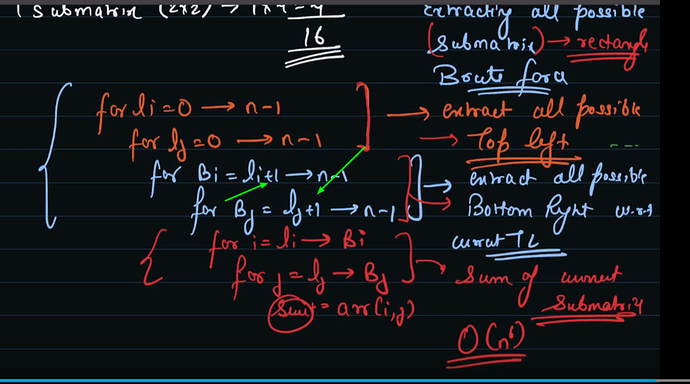 1 Submatrix (2x2) → 1x4 = 4
16
Extracting all possible
(Submatrix) → rectangle
Brute force
for li=0 → n-1
for lj=0 → n-1
→ extract all possible
→ Top left
for Bi = li+1 → n-1
for Bj = lj+1 → n-1
→ extract all possible
→ Bottom Right w.r.t
current TL
for i = li → Bi
for j = lj → Bj
sum += arr(i,j)
→ Sum of current
Submatrix
O(n⁶)